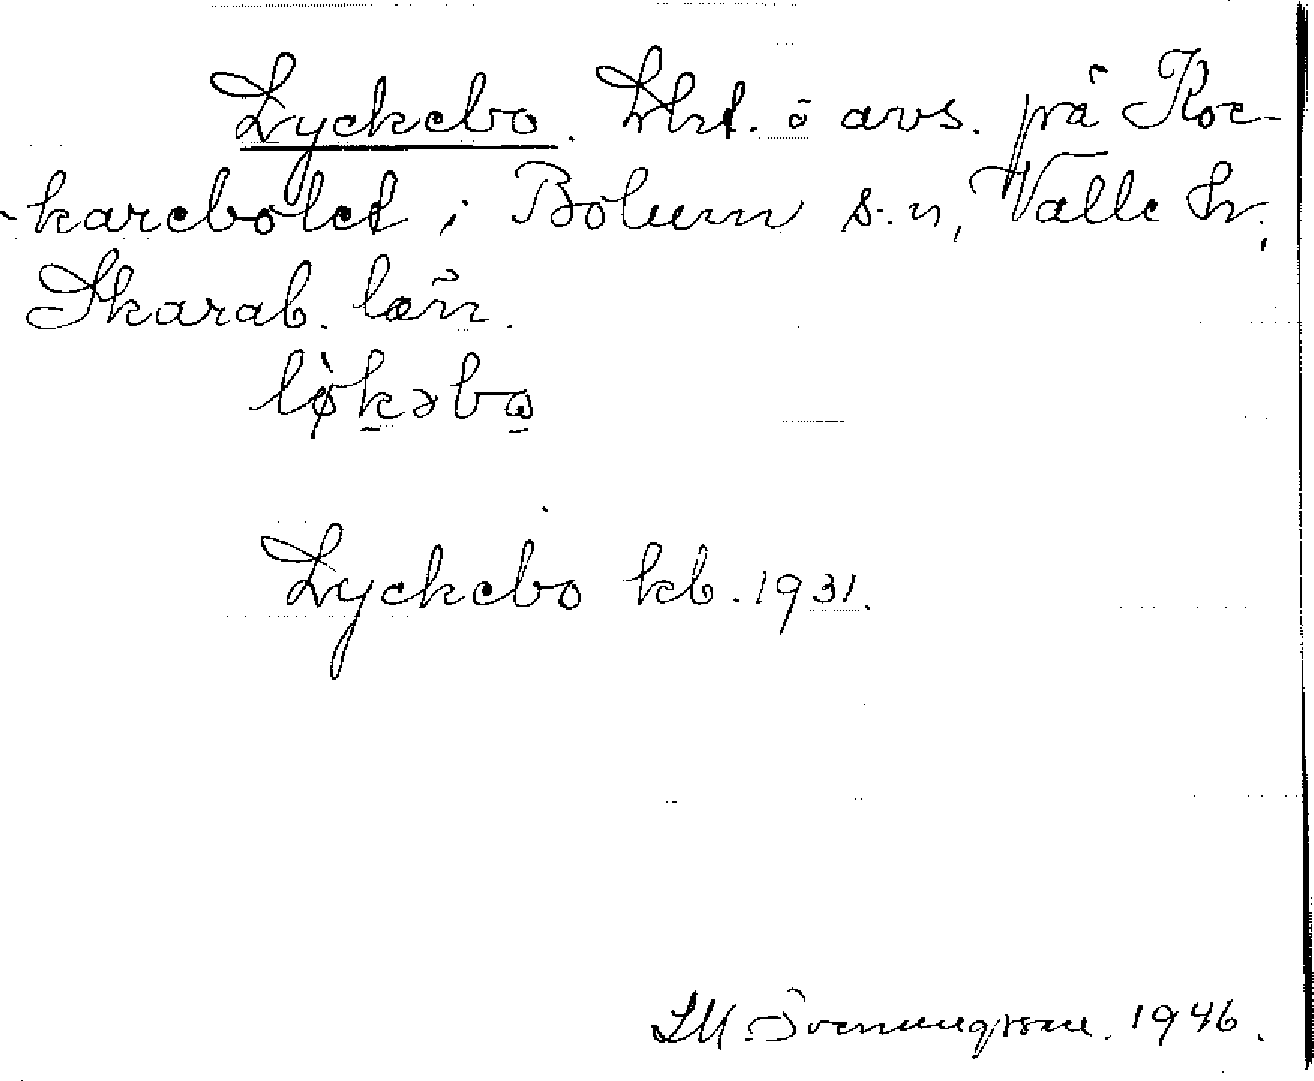 Lyckebo. Lht. ö avs. på Roc-
karebolet i Bolum s:n, Valle hr,
Skarab. län.
lø̀kəbo
Lyckebo kb. 1931.
SM. Svenungsson. 1946.